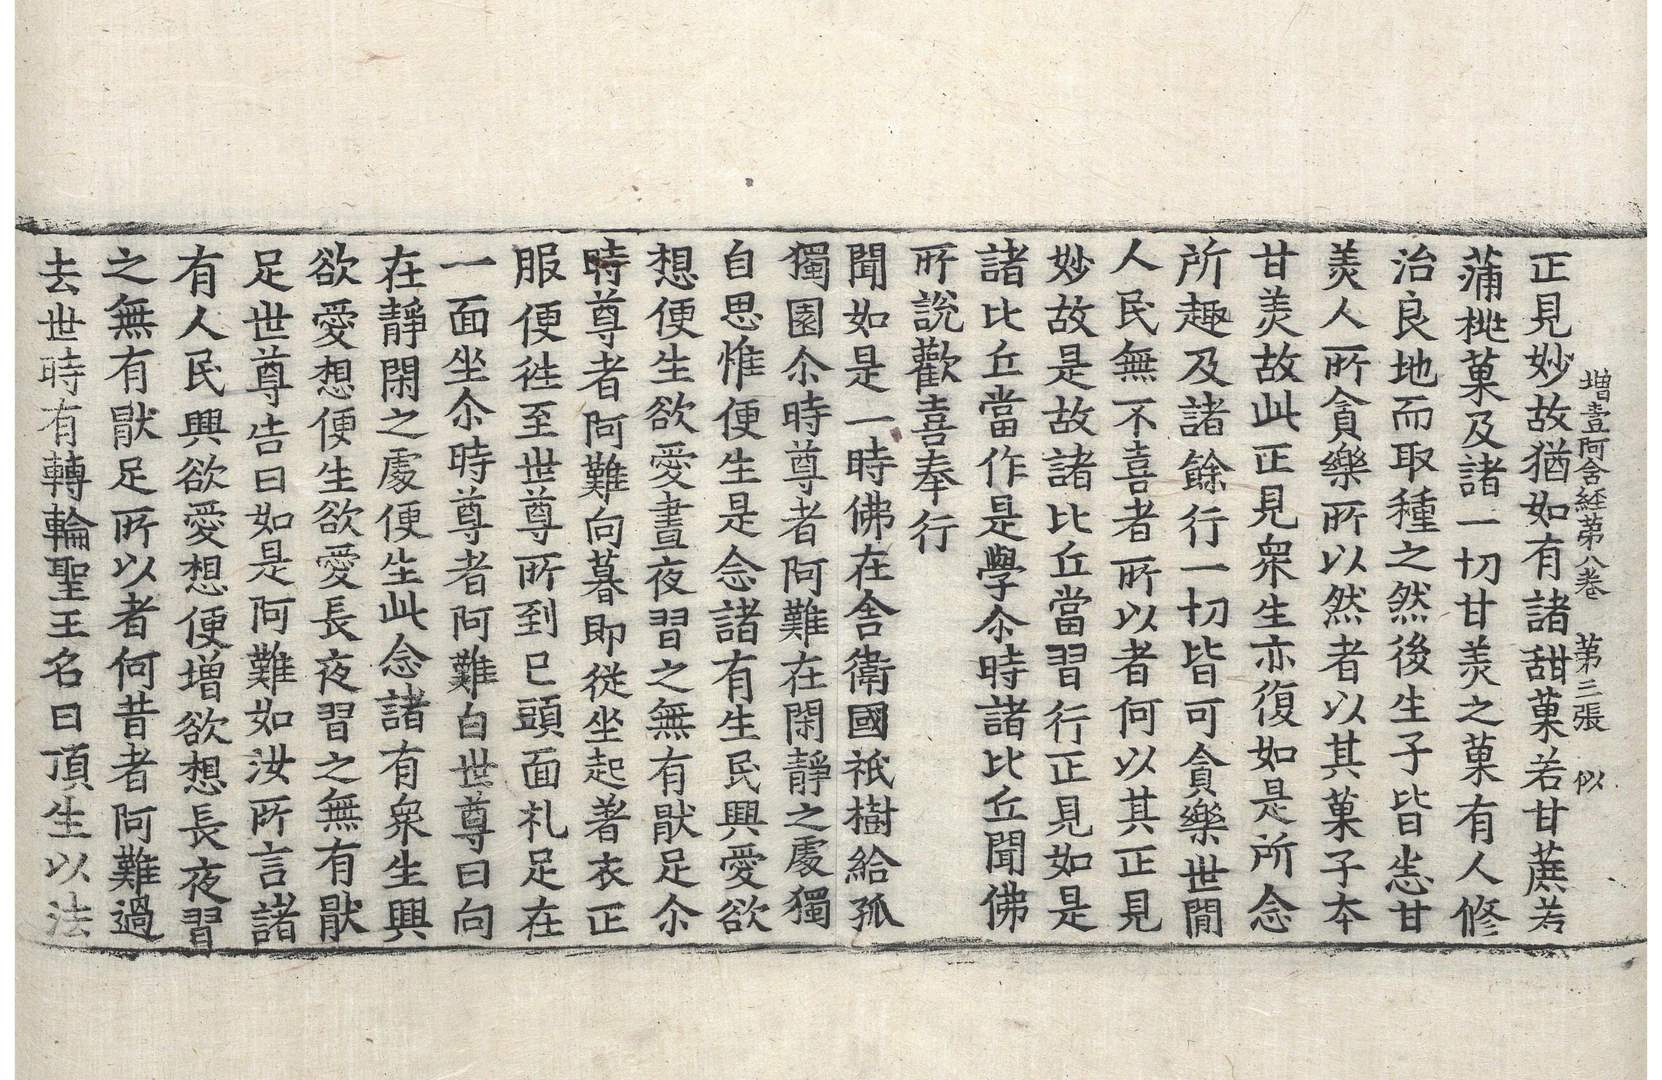 增壹阿含経苐八卷　第三張　似
正見妙故猶如有諸甜菓若甘蔗若
蒲桃菓及諸一切甘羙之菓有人修
治良地而取種之然後生子皆悉甘
羙人所貪樂所以然者以其菓子本
甘羙故此正見衆生亦復如是所念
所趣及諸餘行一切皆可貪樂世間
人民無不喜者所以者何以其正見
妙故是故諸比丘當習行正見如是
諸比丘當作是學尒時諸比丘聞佛
所說歡喜奉行
聞如是一時佛在舍衛國祇樹給孤
獨園尒時尊者阿難在閑靜之處獨
自思惟便生是念諸有生民興愛欲
想便生欲愛晝夜習之無有猒足尒
時尊者阿難向暮即從坐起著衣正
服便往至世尊所到已頭面礼足在
一面坐尒時尊者阿難白世尊曰向
在靜閑之處便生此念諸有衆生興
欲愛想便生欲愛長夜習之無有猒
足世尊告曰如是阿難如汝所言諸
有人民興欲愛想便增欲想長夜習
之無有猒足所以者何昔者阿難過
去世時有轉輪聖王名曰頂生以法